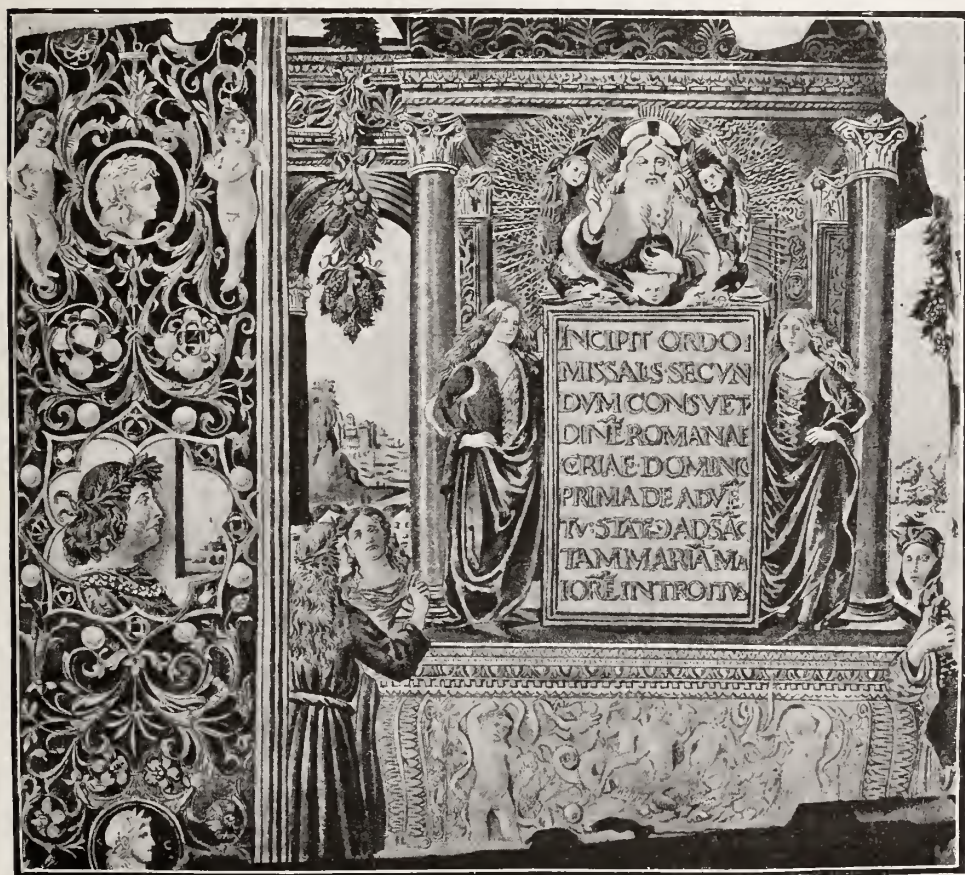 INCIPIT ORDO
MISSALS SECVN
DVM CONSVET
DINĒ ROMANAE
CRIAE·DOMINC
PRIMA DE ADVĒ
TV·STATƆ ADSĀC
TAM MARIĀ MA
IORĒ INTROITVS